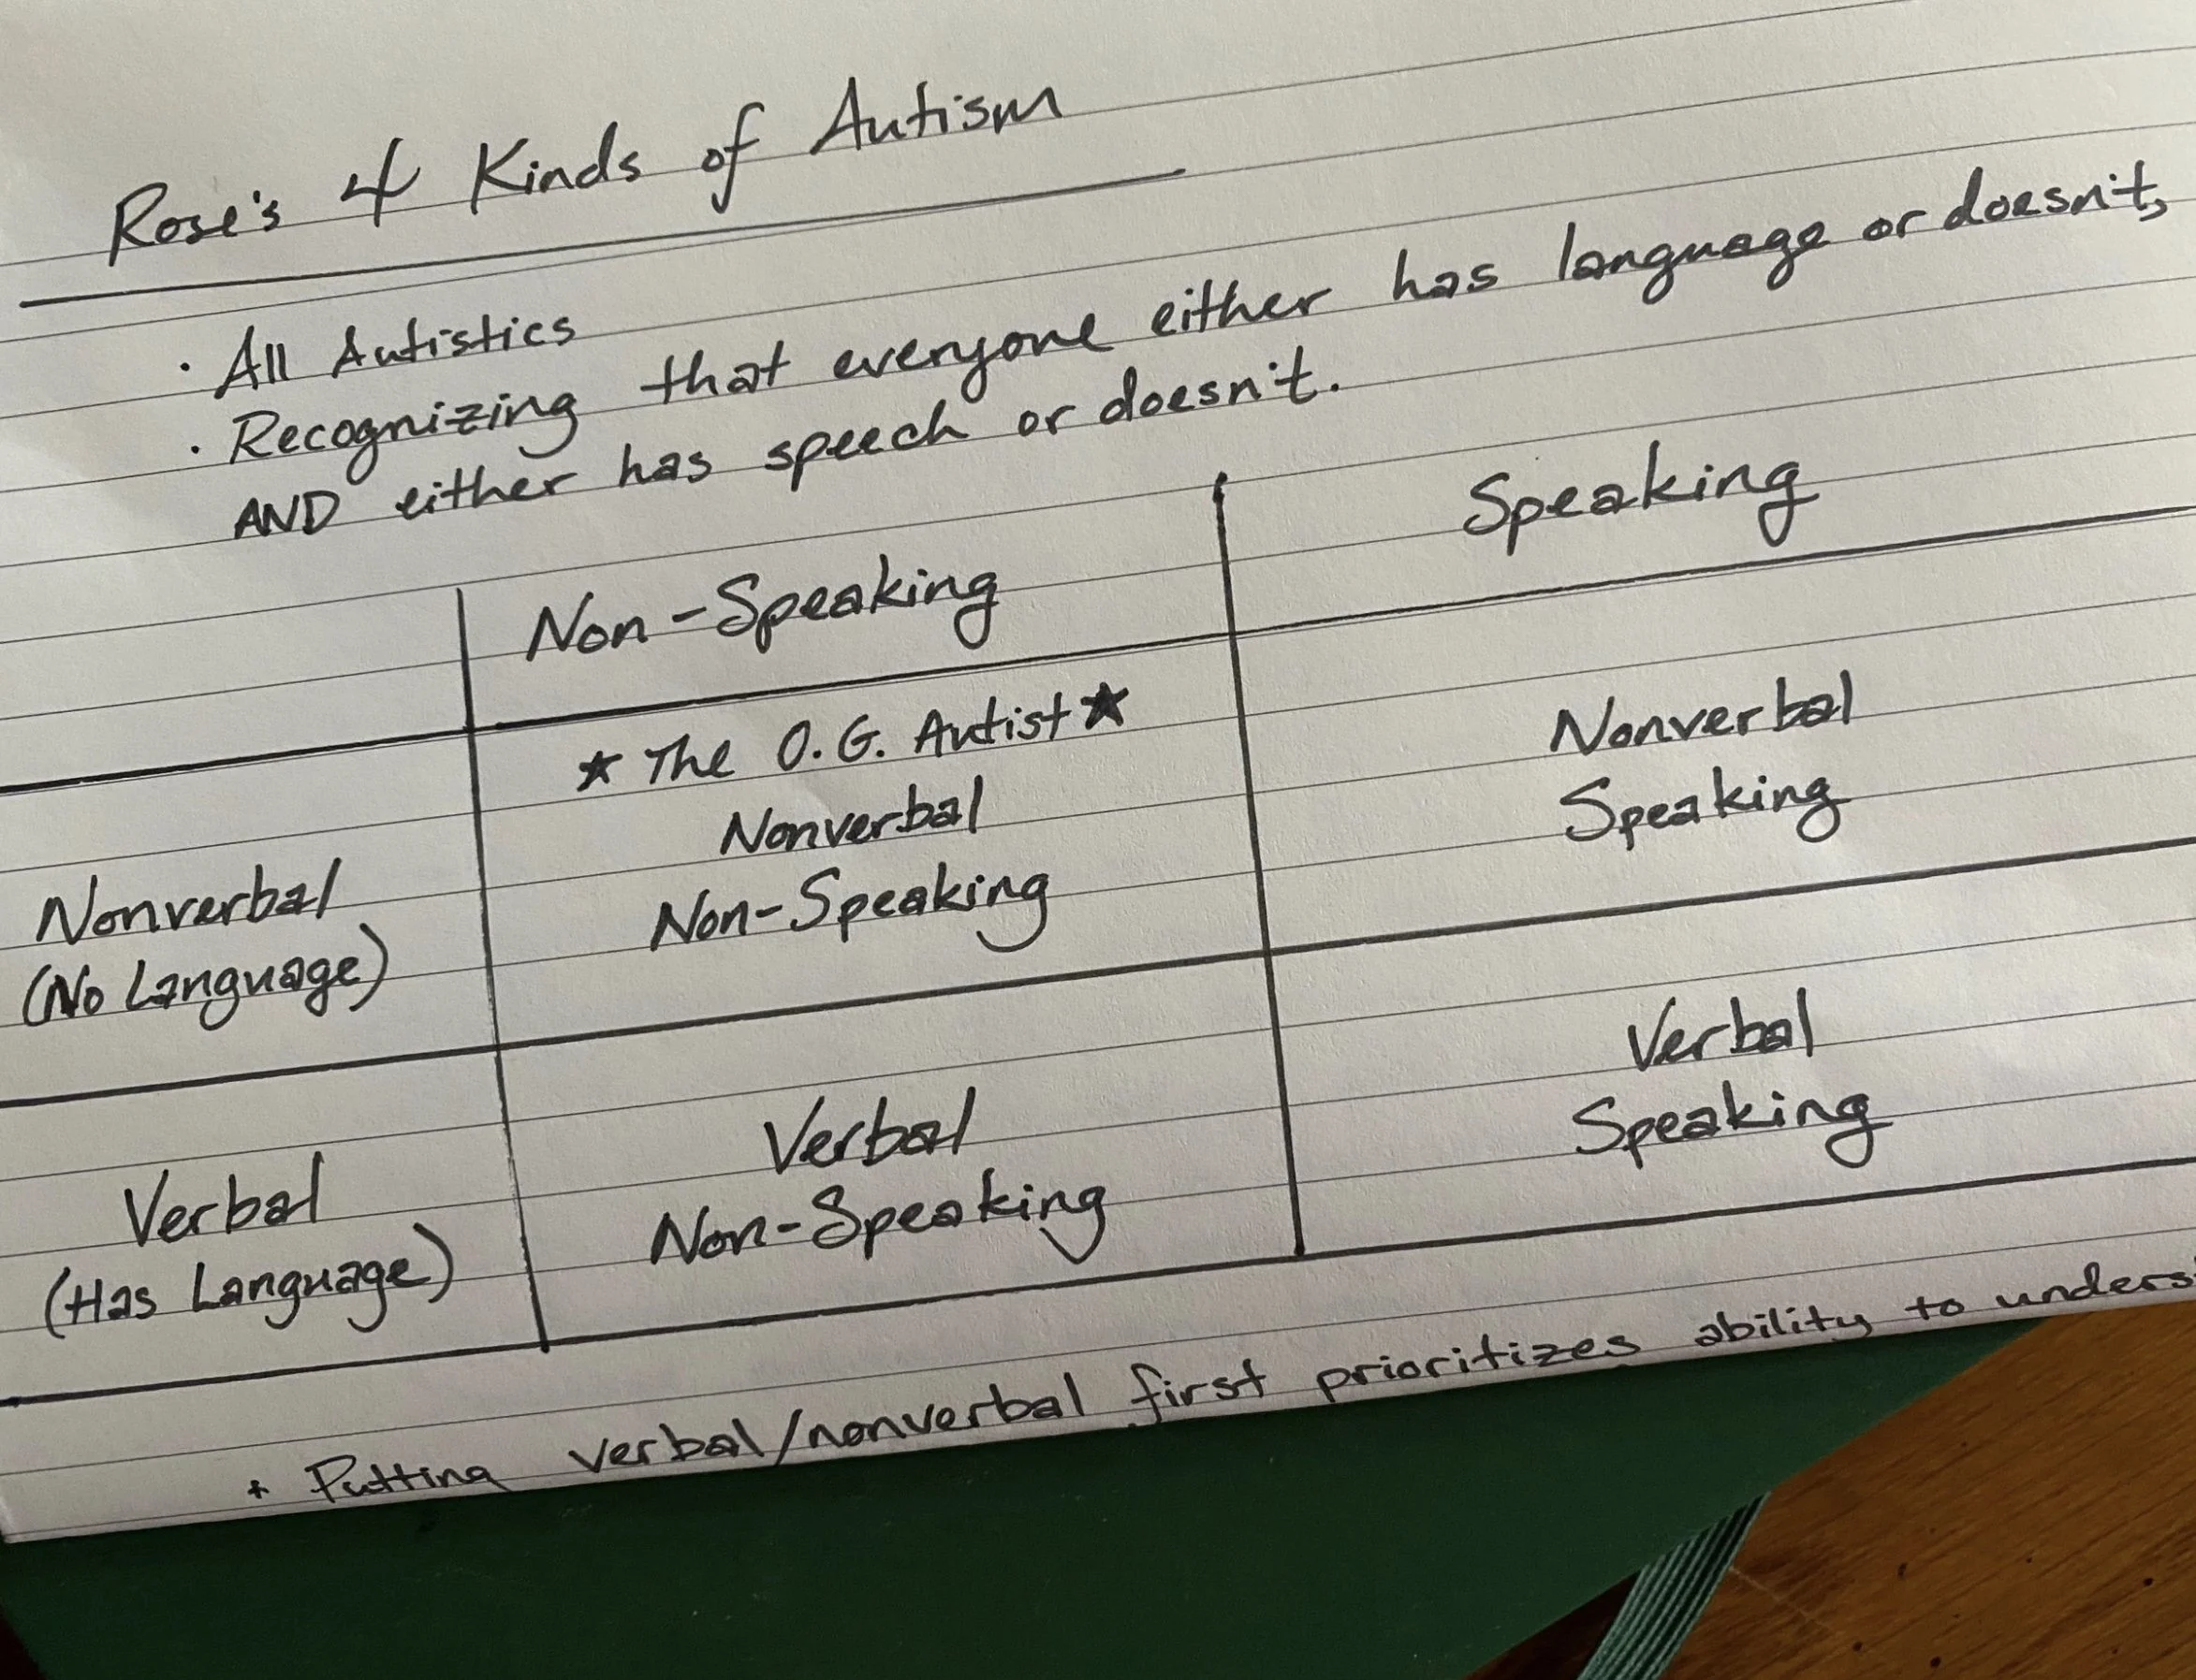 Rose's 4 Kinds of Autism
· All Autistics
· Recognizing that everyone either has language or doesn't,
AND either has speech or doesn't.
Non-Speaking
Speaking
Nonverbal
(No Language)
★ The O.G. Autist ★
Nonverbal
Non-Speaking
Nonverbal
Speaking
Verbal
(Has Language)
Verbal
Non-Speaking
Verbal
Speaking
* Putting verbal/nonverbal first prioritizes ability to